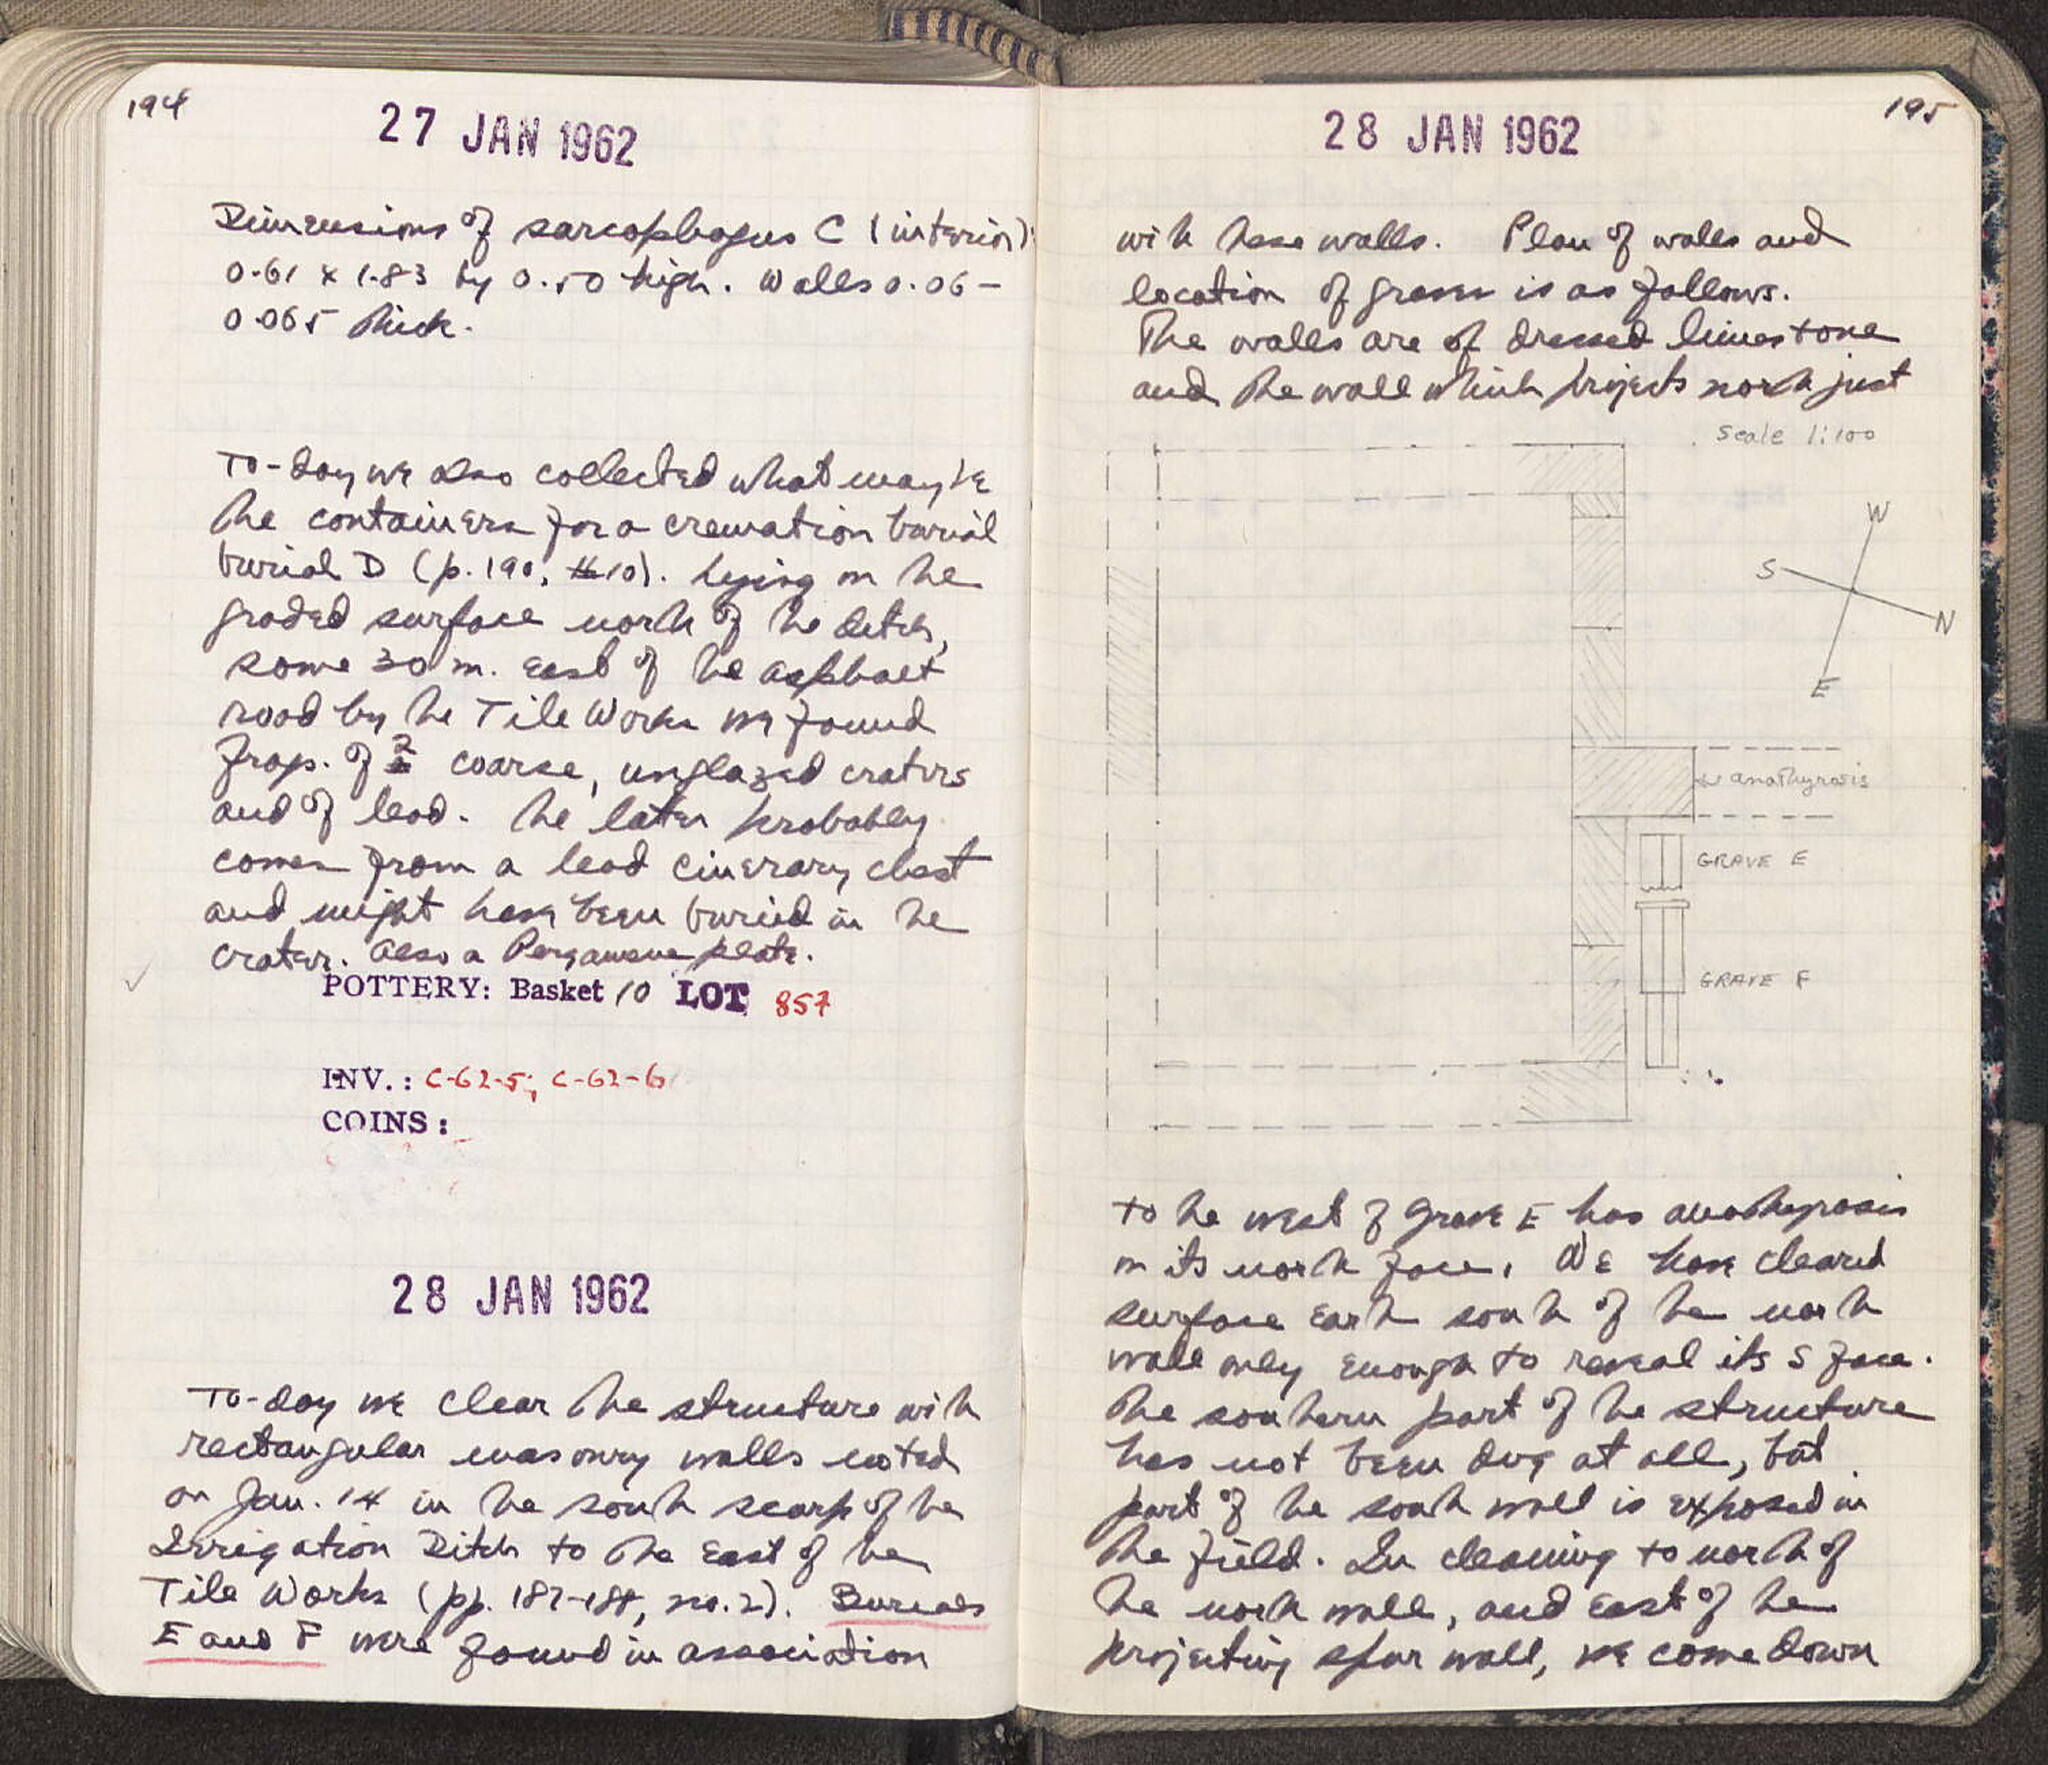 194
27 JAN 1962
Dimensions of sarcophagus C (interior):
0.61 x 1.83 by 0.50 high. Walls 0.06 –
0.065 thick.
To-day we also collected what may be
the containers for a cremation burial
burial D (p. 190, #10). Lying on the
graded surface north of the ditch,
some 30 m. east of the asphalt
road by the Tile Works we found
frag. of 2 coarse, unglazed craters
and of lead. The latter probably
comes from a lead cinerary chest
and might have been buried in the
crater. Also a Pergamene plate.
POTTERY: Basket 10 LOT 857
INV.: C-62-5; C-62-6
COINS:
28 JAN 1962
To-day we clear the structure with
rectangular masonry walls noted
on Jan. 14 in the south scarp of the
Irrigation Ditch to the East of the
Tile Works (pp. 187-188, no. 2). Burials
E and F were found in association
195
28 JAN 1962
with these walls. Plan of walls and
location of graves is as follows.
The walls are of dressed limestone
and the wall which projects north just
Scale 1:100
W
S
N
E
anathyrosis
GRAVE E
GRAVE F
to the west of Grave E has anathyrosis
on its north face. We have cleared
surface earth south of the north
wall only enough to reveal its S face.
The southern part of the structure
has not been dug at all, but
part of the south wall is exposed in
the field. In cleaning to north of
the north wall, and East of the
projecting spur wall, we come down